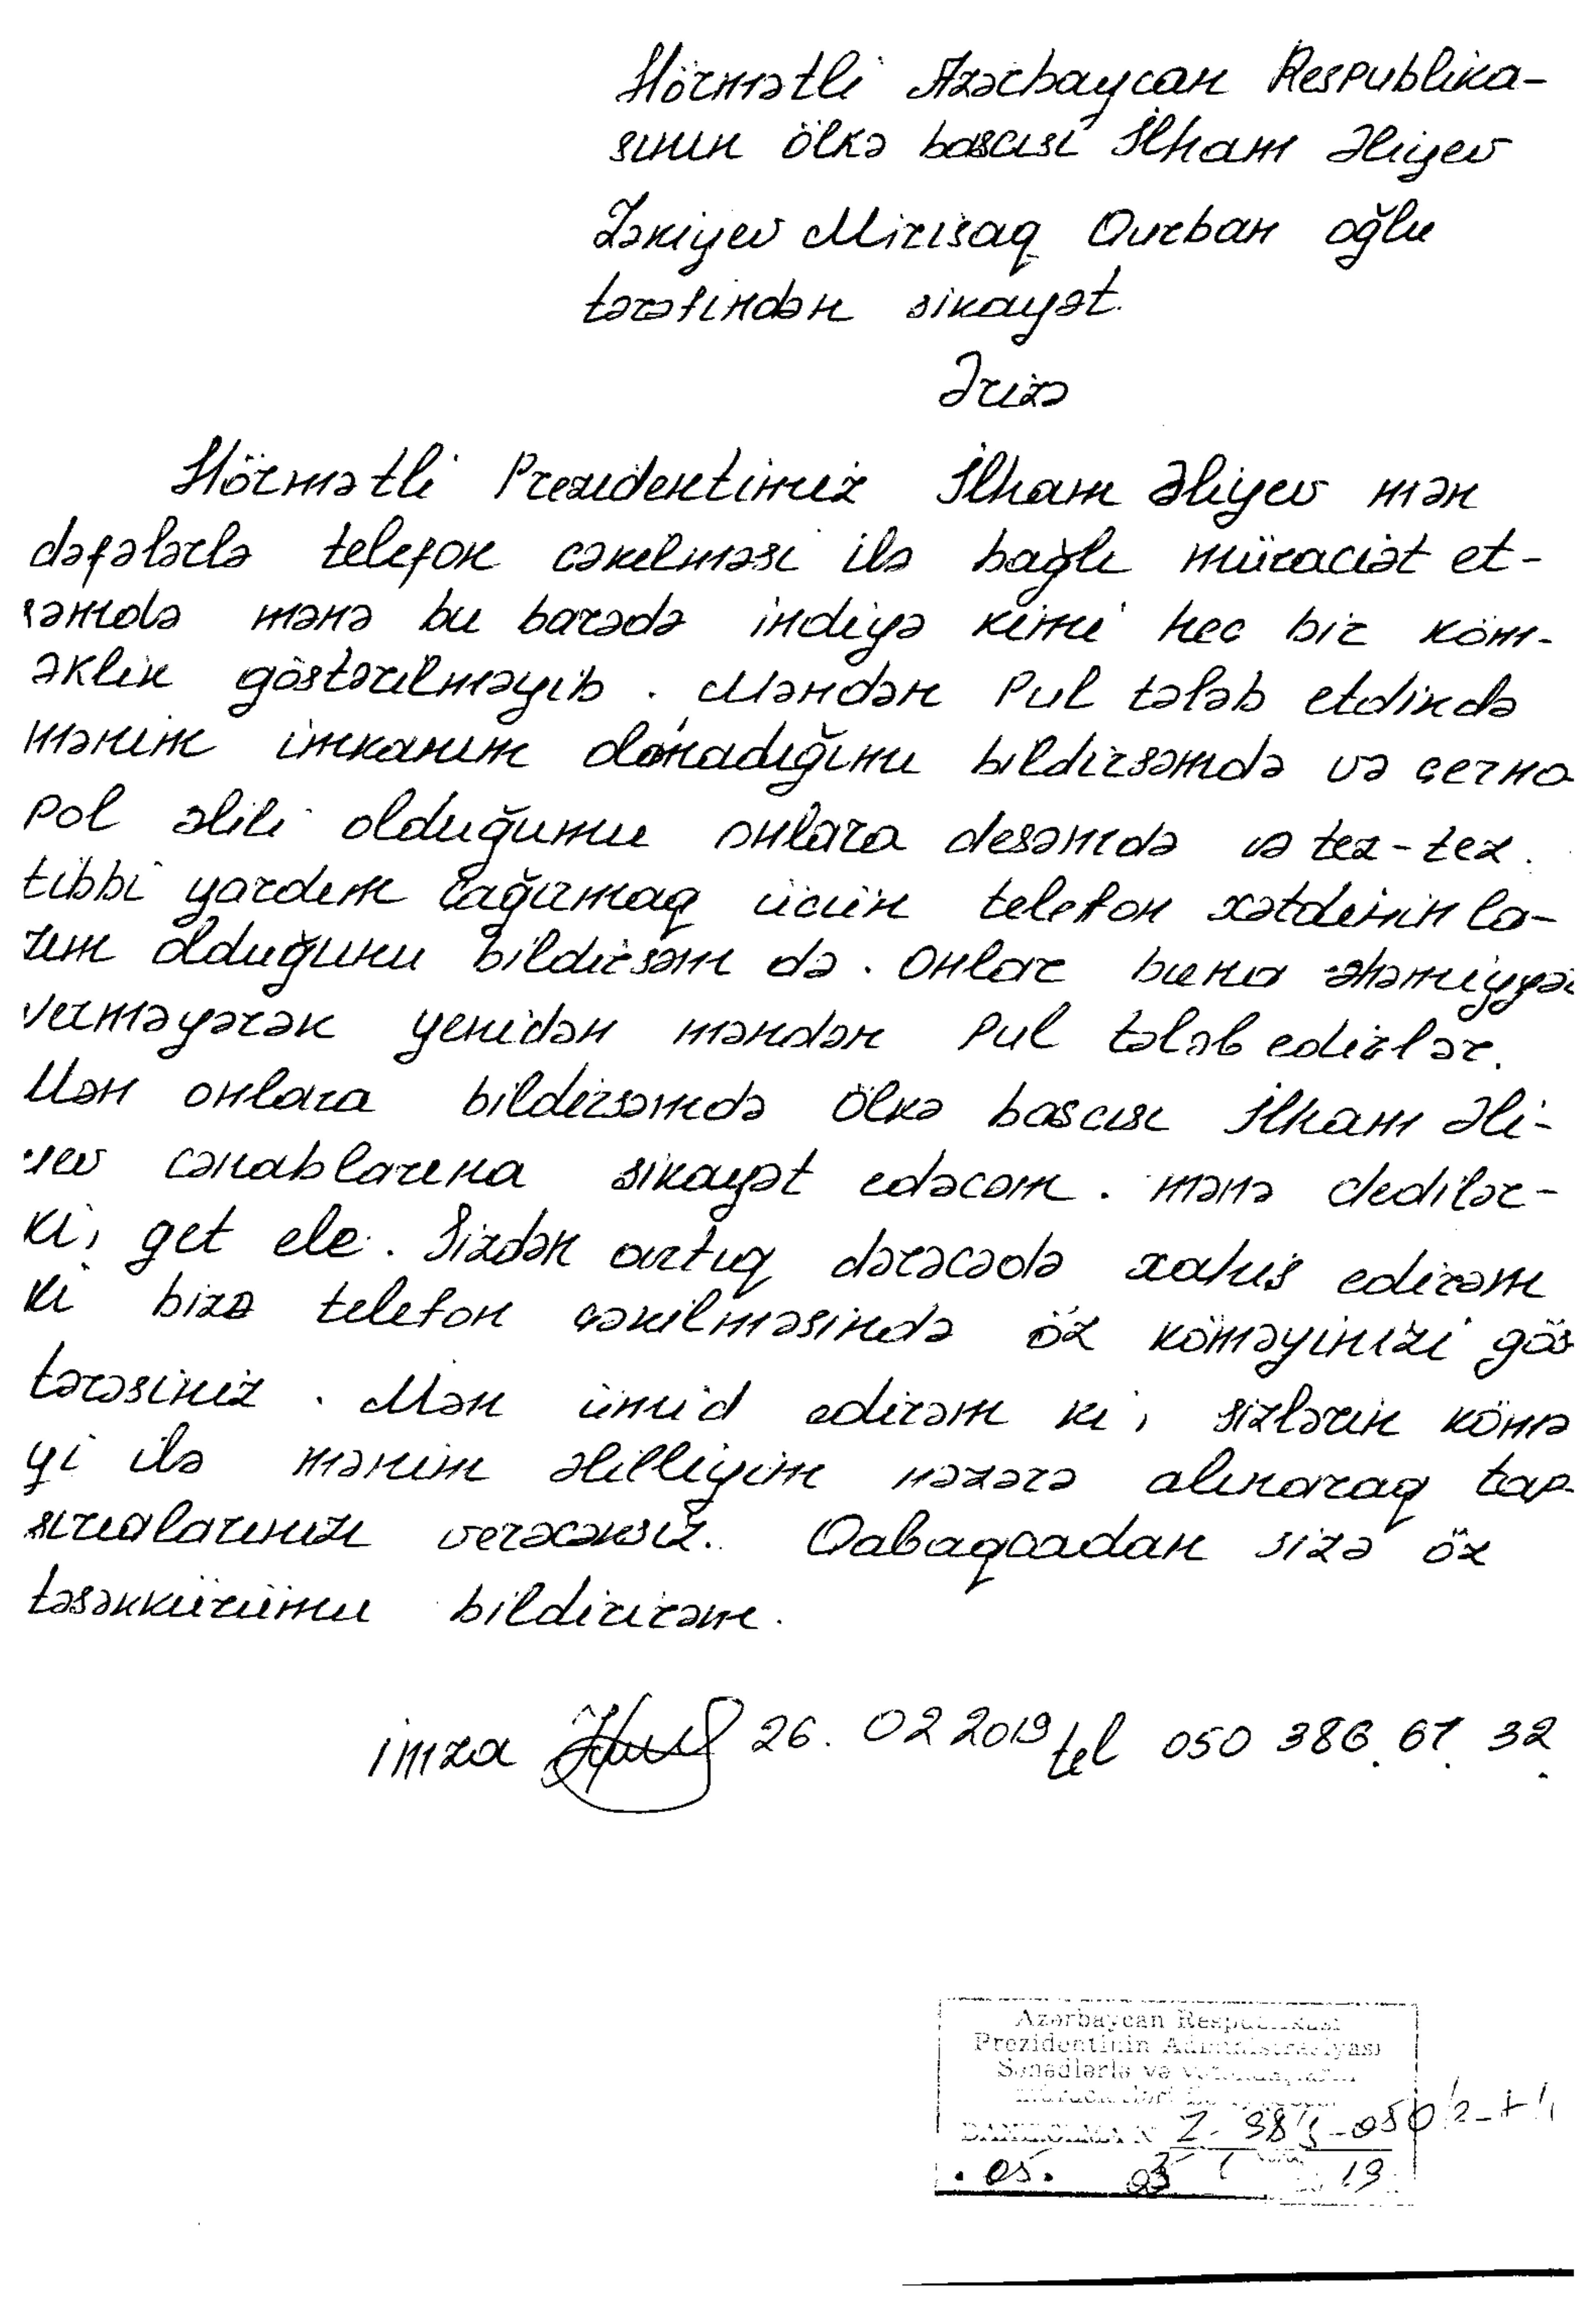 Hörmətli Azərbaycan Respublika-
sının ölkə bascısı İlham Əliyev
Zəkiyev Mirisaq Qurban oğlu
tərəfindən sikayət.
Ərizə
Hörmətli Prezidentimiz İlham Əliyev mən
dəfələrlə telefon cəkilməsi ilə bağlı müraciət et-
səmdə mənə bu barədə indiyə kimi hec bir köm-
əklik göstərilməyib. Məndən pul tələb etdikdə
mənim imkanım olmadığımı bildirsəmdə və çerno
pol əlili olduğumu onlara desəmdə və tez-tez
tibbi yardım çağırmaq ücün telefon xətdinin la-
zım olduğunu bildirsəm də. Onlar buna əhəmiyyət
verməyərək yenidən məndən pul tələb edirlər.
Mən onlara bildirsəmdə ölkə bascısı İlham Əli-
yev cənablarına sikayət edəcəm. mənə dedilər-
ki, get ele. Sizdən artıq dərəcədə xahis edirəm
ki bizə telefon çəkilməsində öz köməyinizi gös
tərəsiniz. Mən ümid edirəm ki, sizlərin kömə
yi ilə mənim əlilliyim nəzərə alınaraq tap-
sırıqlarınızı verəcəksiz. Qabaqcadan sizə öz
təsəkkürümü bildirirəm.
imza 26. 02 2019 tel 050 386. 67. 32
Azərbaycan Respublikası
Prezidentinin Administrasiyası
Sənədlərlə və vətəndaşların
müraciətləri ilə
DAXİLOLMA №
.05. 03 19